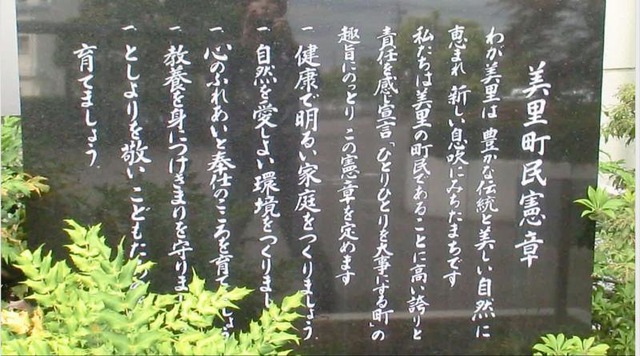 美里町民憲章
わが美里は 豊かな伝統と美しい自然に
恵まれ 新しい息吹にみちたまちです
私たちは美里の町民であることに高い誇りと
責任を感じ宣言「ひとりひとりを大事にする町」の
趣旨にのっとり この憲章を定めます
一 健康で明るい家庭をつくりましょう
一 自然を愛しよい環境をつくりまし
一 心のふれあいと奉仕のこころを育て しょう
一 教養を身につけきまりを守りま
一 としよりを敬いこどもた
育てましょう